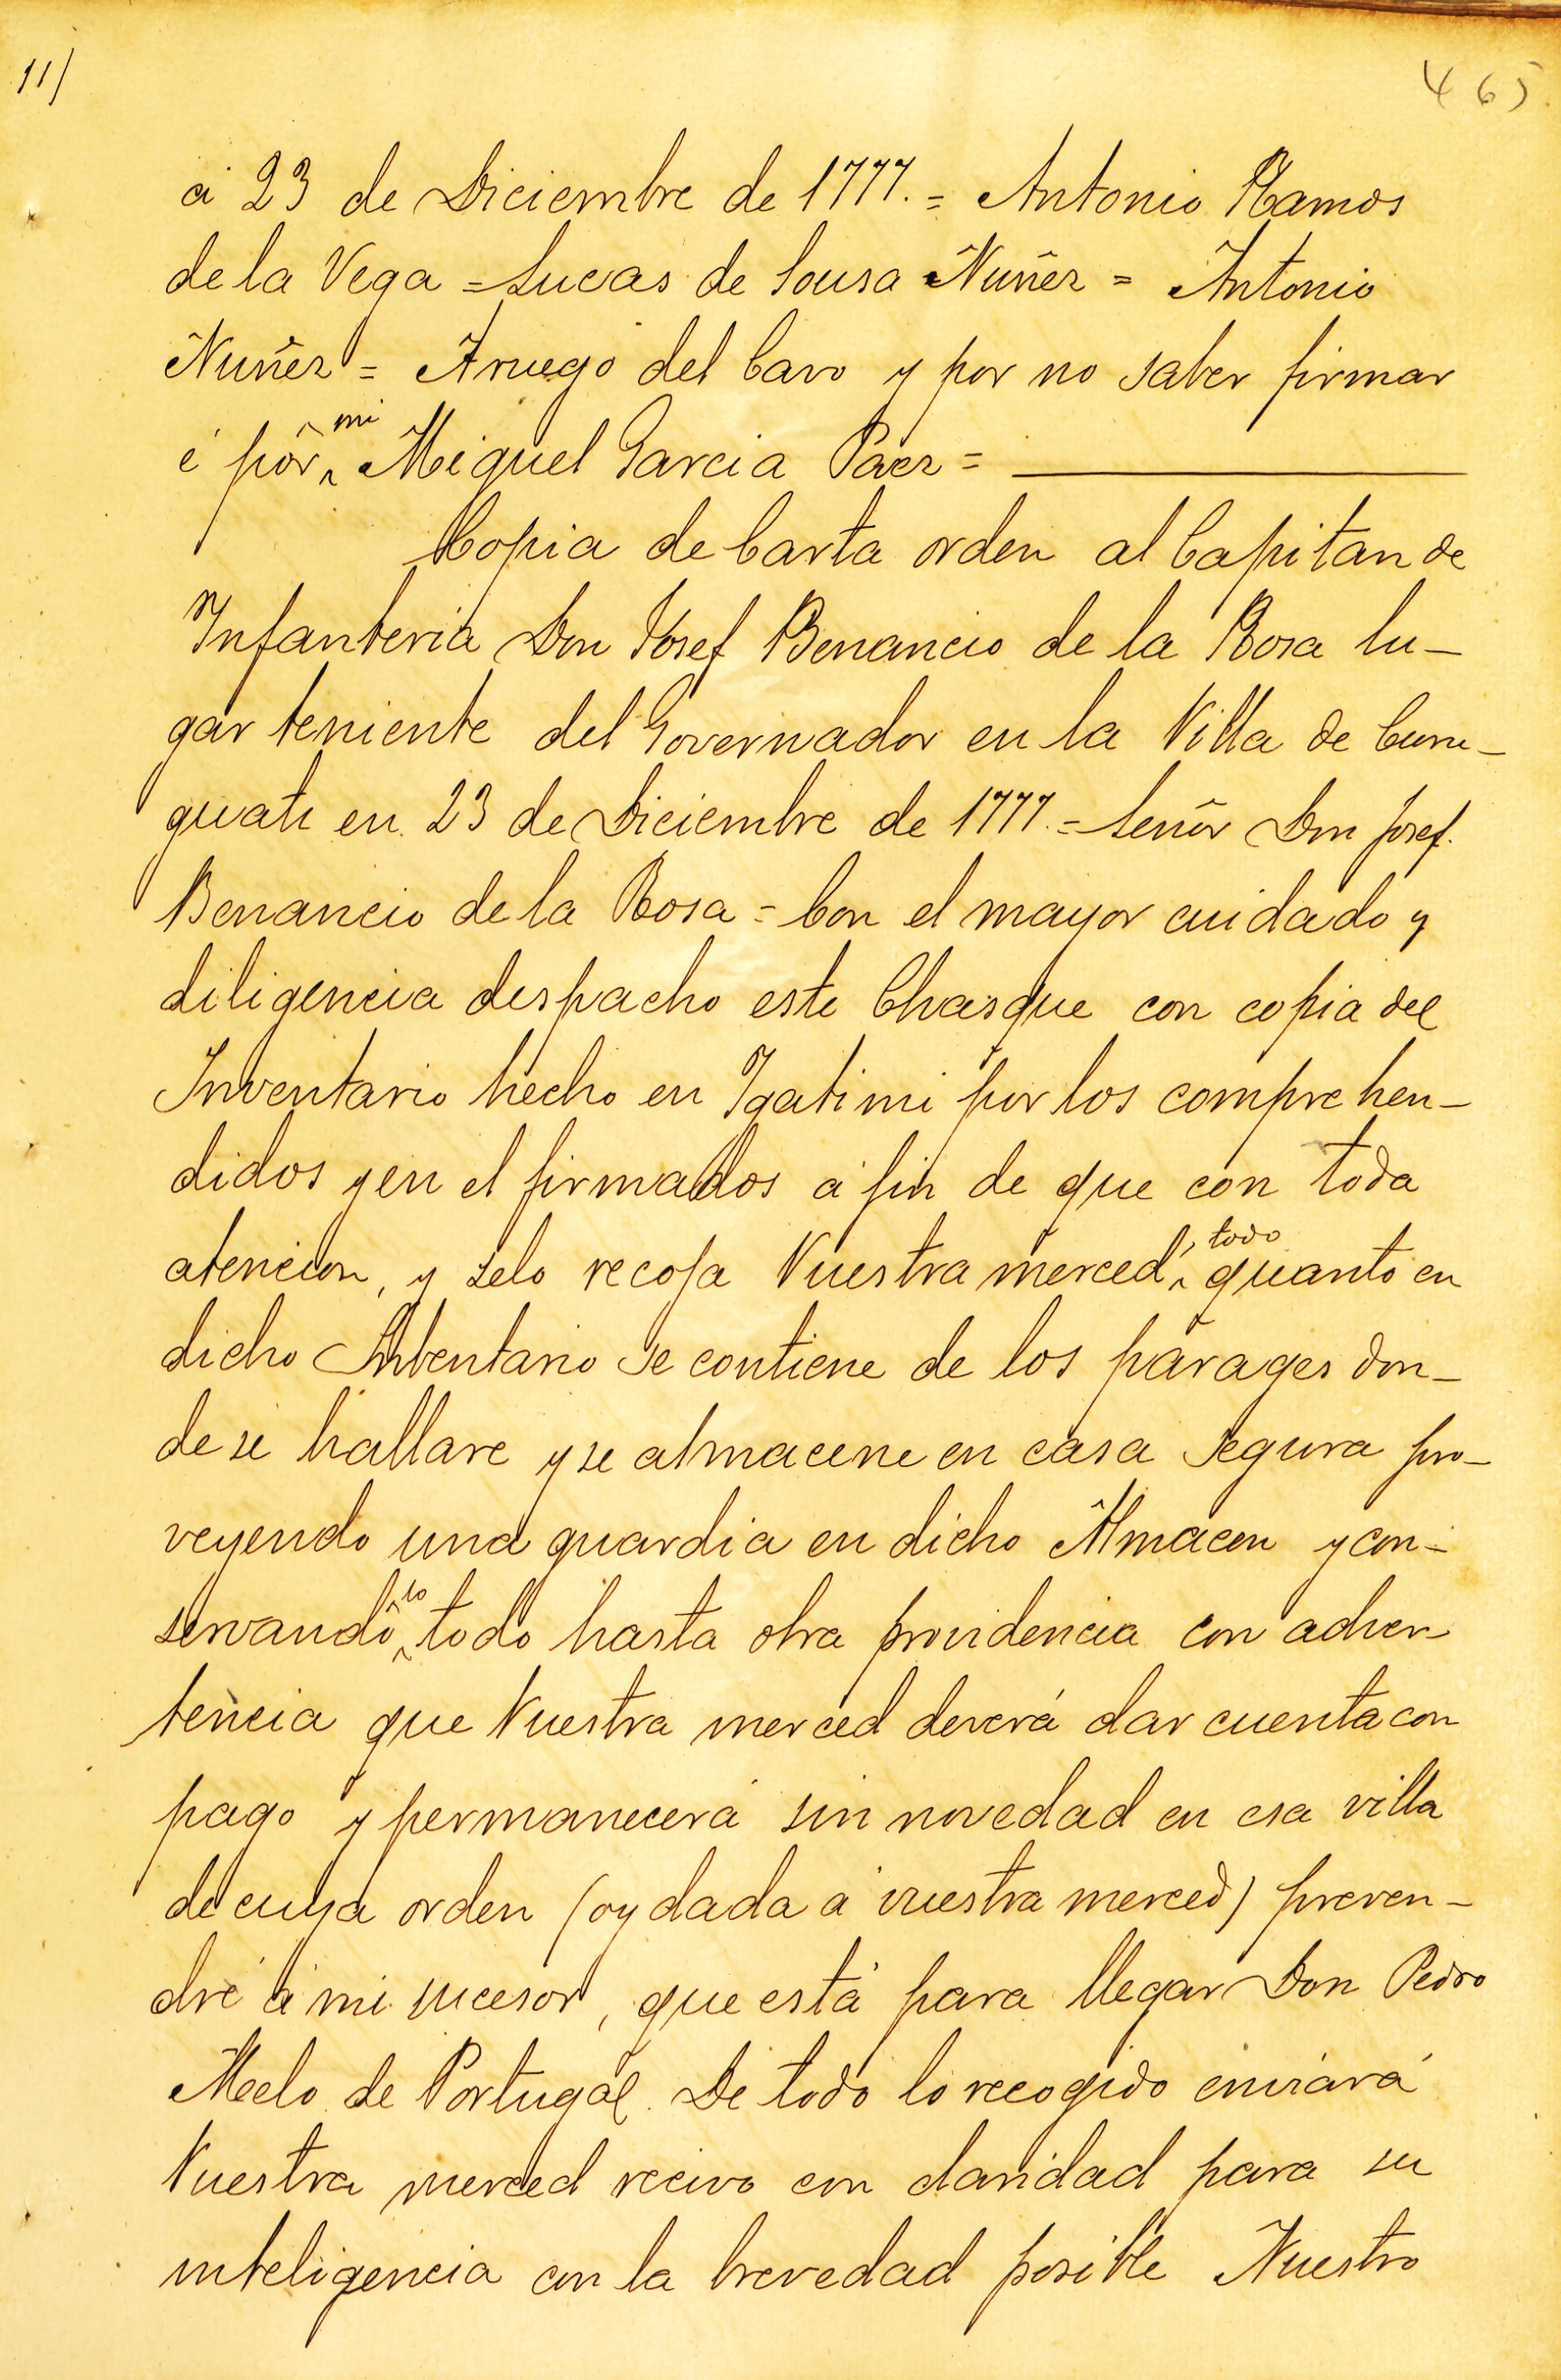 11/
465
á 23 de Diciembre de 1777. = Antonio Ramos
de la Vega = Lucas de Sousa Nuñez = Antonio
Nuñez = Aruego del Cavo y por no saber firmar
é por mi Miguel Garcia Paez =
Copia de Carta orden al Capitan de
Infanteria Don Josef Benancio de la Rosa lu-
gar teniente del Governador en la Villa de Curu-
guati en 23 de Diciembre de 1777. = Señor Don Josef.
Benancio de la Rosa = Con el mayor cuidado y
diligencia despacho este Chasque con copia del
Inventario hecho en Igatimi por los comprehen-
didos y en el firmados á fin de que con toda
atencion, y selo recoja Vuestra merced, todo quanto en
dicho Inbentario se contiene de los parages don-
de se hallare y se almacene en casa segura pro-
veyendo una guardia en dicho Almacen y con-
servandolo todo hasta otra providencia con adver-
tencia que Vuestra merced deverá dar cuenta con
pago y permanecerá sin novedad en esa villa
de cuya orden (oy dada a vuestra merced) preven-
dré á mi sucesor, que está para llegar Don Pedro
Melo de Portugal. De todo lo recogido enviará
Vuestra merced recivo con claridad para su
inteligencia con la brevedad posible Nuestro